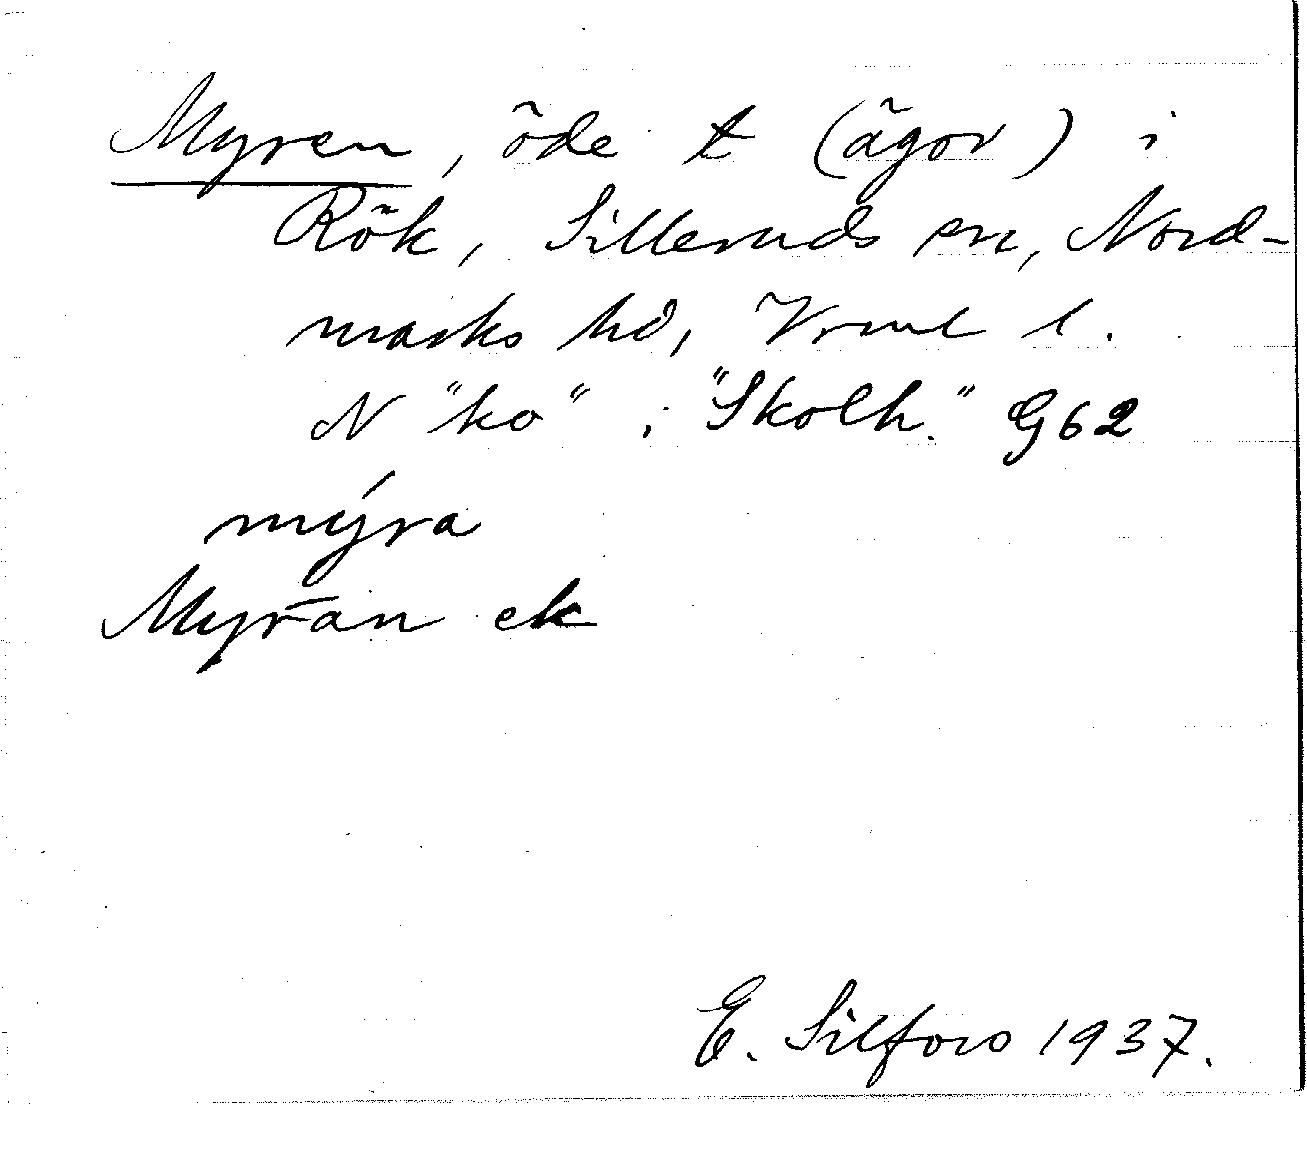 Myren, öde t (ägor) i
Rök, Silleruds sn, Nord-
marks hd, Vrml l.
N "ko" i "Skolh." G62
mýra
Myran ek
E. Silfors 1937.